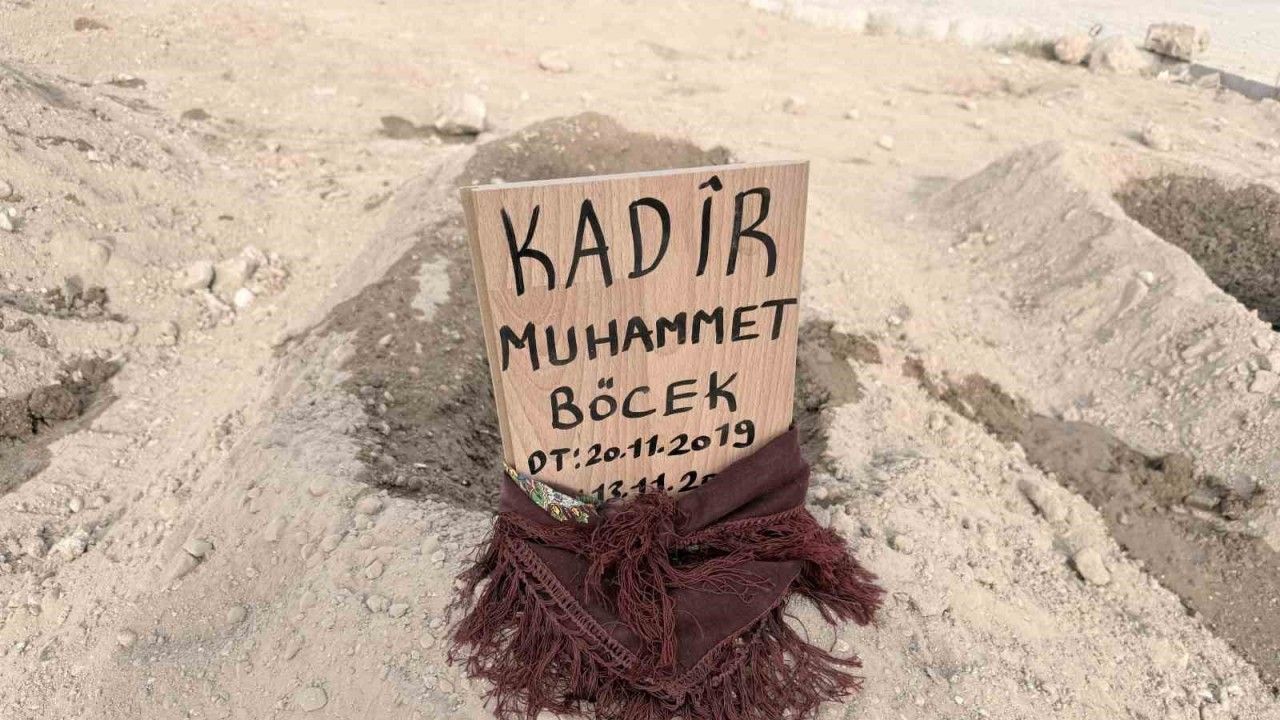 KADÎR
MUHAMMET
BÖCEK
DT: 20.11.2019
13.11.20